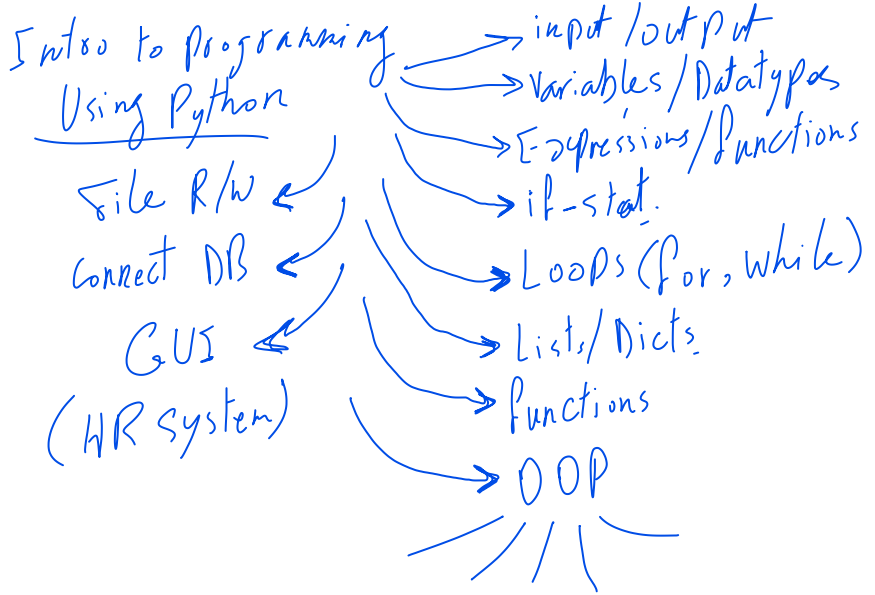 Intro to programming
Using Python
input/output
variables/Datatypes
Expressions/functions
if-stat.
Loops (for, while)
Lists/Dicts
functions
OOP
File R/W
Connect DB
GUI
(HR system)